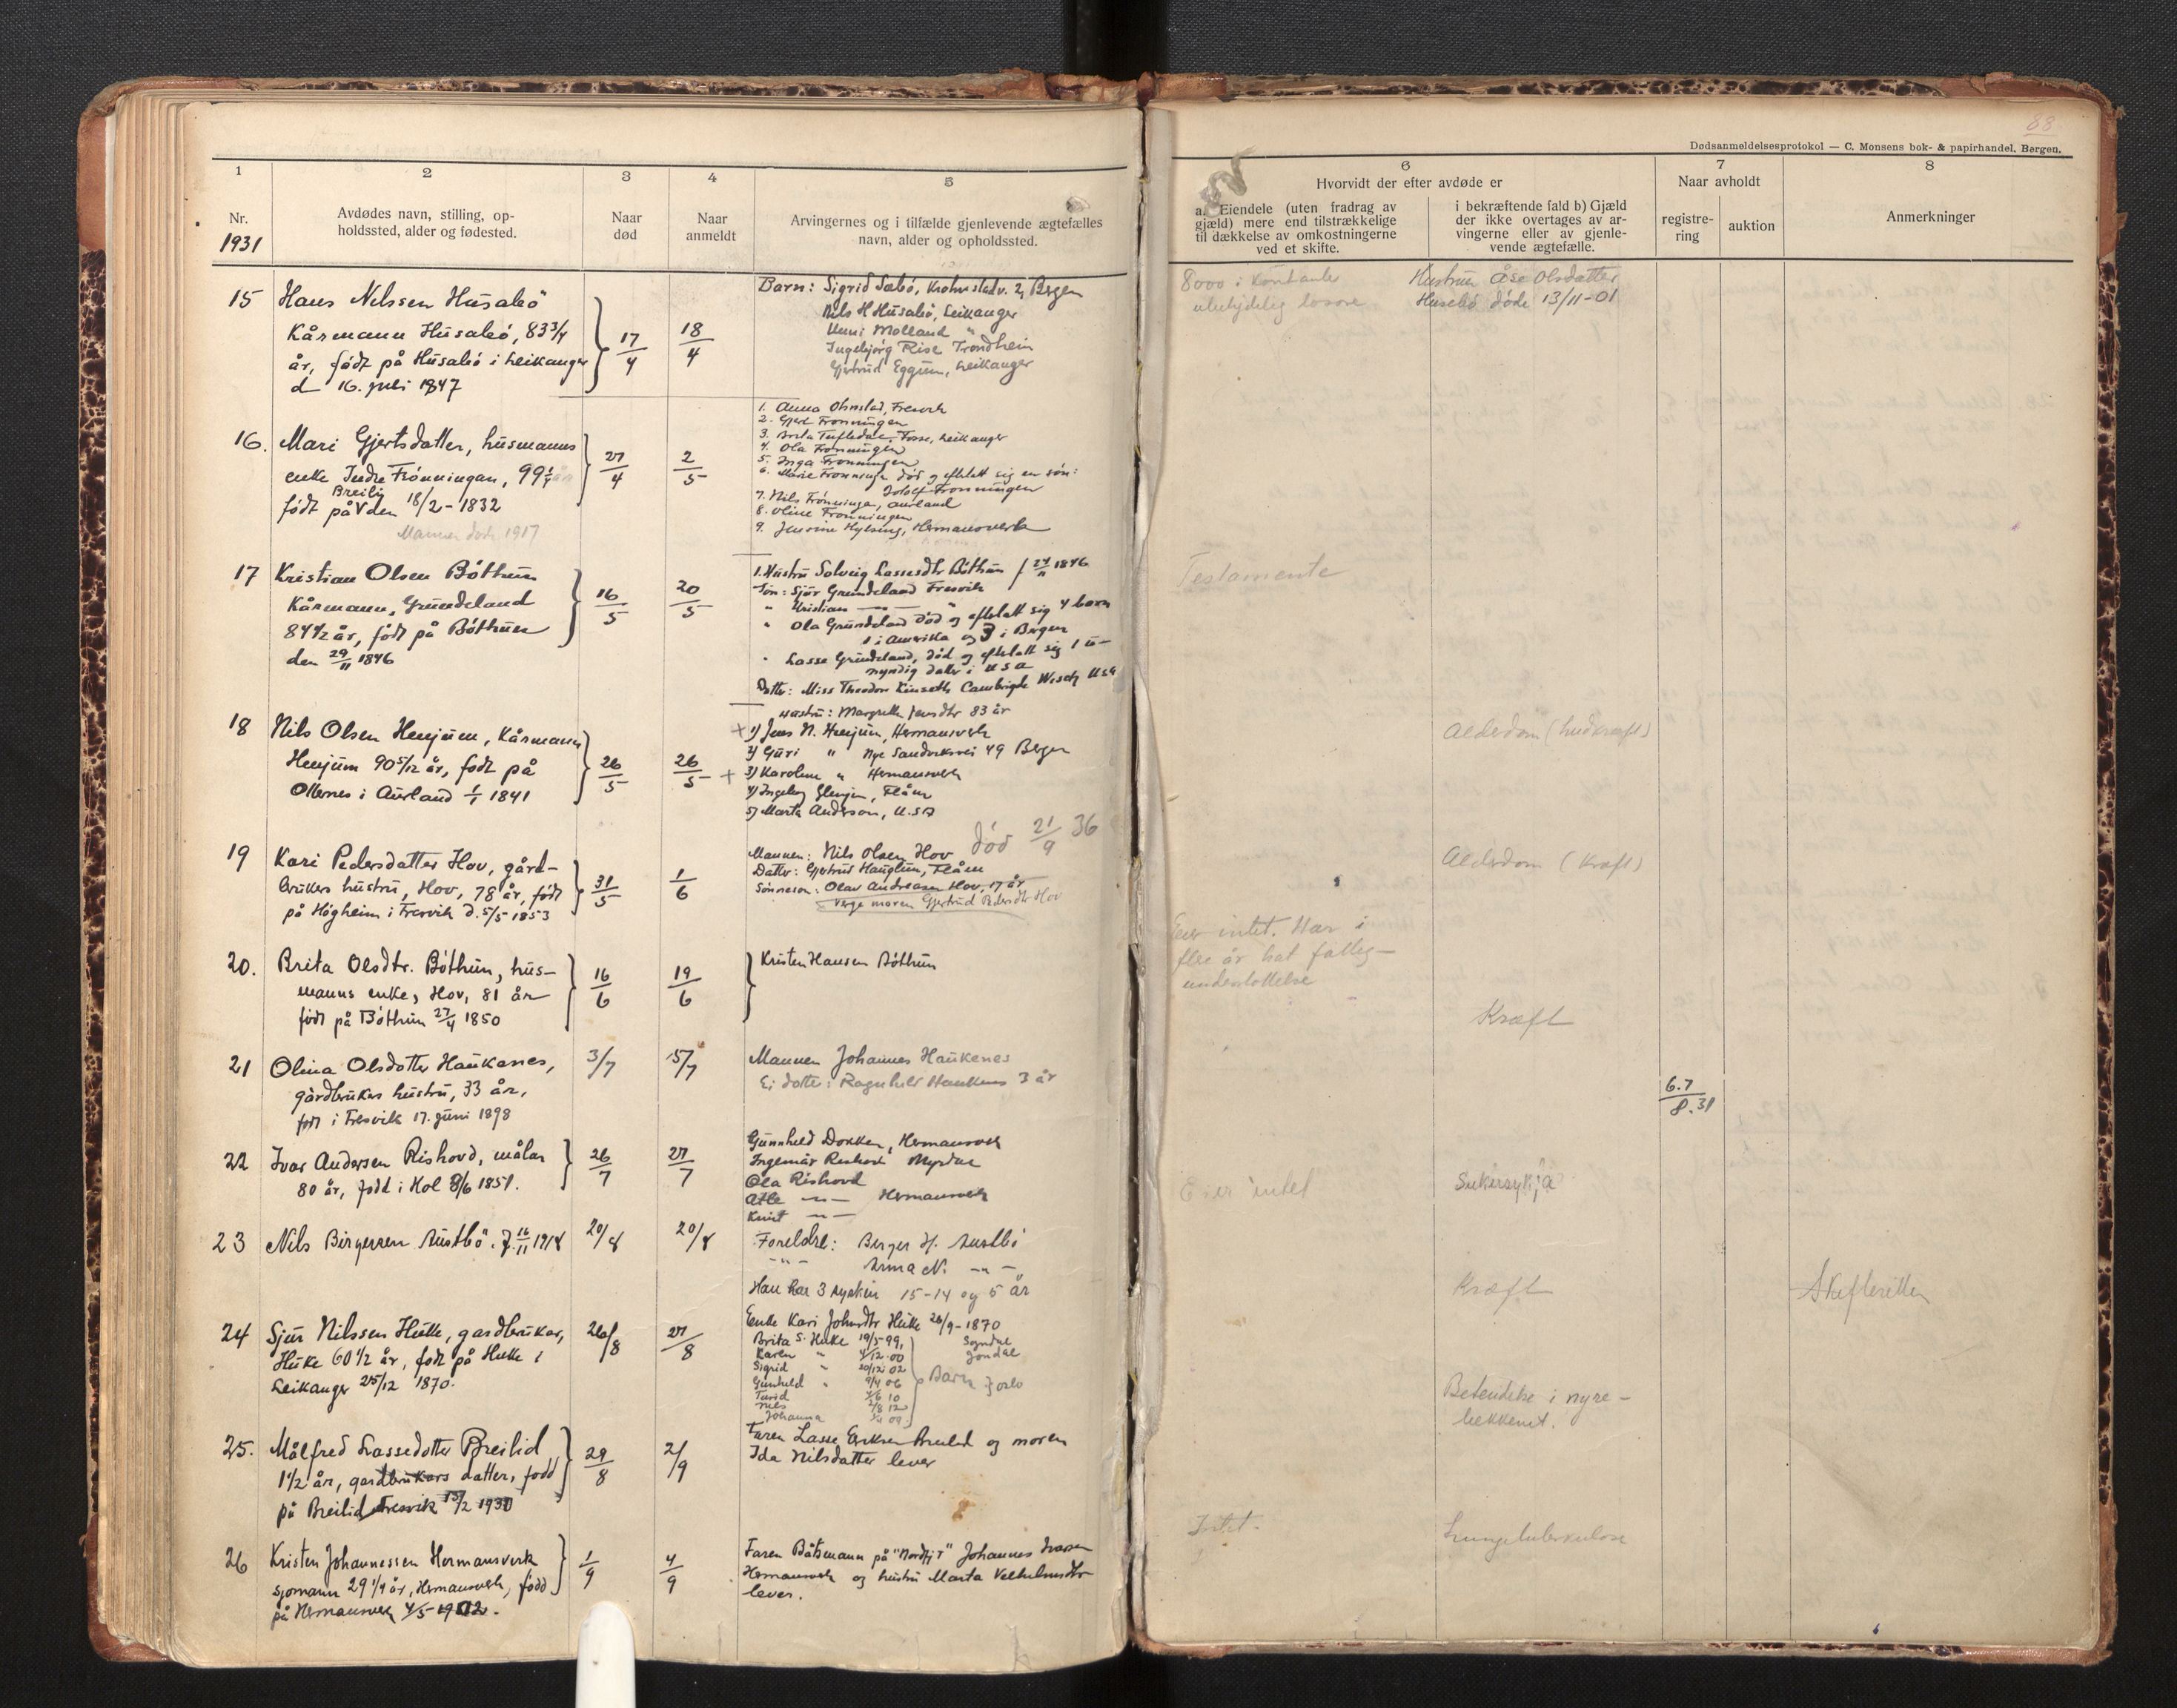 88
Dødsanmeldelsesprotokol — C. Monsens bok- & papirhandel, Bergen.
1
2
3
4
5
6
7
8
Nr.
1931
Avdødes navn, stilling, op-
holdssted, alder og fødested.
Naar
død
Naar
anmeldt
Arvingernes og i tilfælde gjenlevende ægtefælles
navn, alder og opholdssted.
Hvorvidt der efter avdøde er
a. Eiendele (uten fradrag av
gjæld) mere end tilstrækkelige
til dækkelse av omkostningerne
ved et skifte.
i bekræftende fald b) Gjæld
der ikke overtages av ar-
vingerne eller av gjenle-
vende ægtefælle.
Naar avholdt
registre-
ring
auktion
Anmerkninger
15 Hans Nilssen Husabö
Kårmann Husabö, 83 3/4
år, född på Husabö i Leikanger
d 16. juli 1847
17/4
18/4
Barn: Sigrid Sæbö, 2, Bergen
Nils H Husabö, Leikanger
Unni Molland "
Ingebjörg Rise Trondheim
Gjertrud Eggum, Leikanger
8000 i Kontanter
ubetydelig losore
Hustru Åse Olsdatter
Husebö döde 13/11-01
16. Mari Gjertsdatter, husmanns
enke Indre Frönningen, 99 1/4 år
Breilig
född på den 18/2-1832
Mannen döde 1917
27/4
2/5
1. Anna Ohnstad, Fresvik
2. Gjert Fronningen
3. Brita Tuftedal, Fosse, Leikanger
4. Ola Fronningen
5. Inga Fronningen
6. Marie Fronningen död og efterlatt sig en sön:
Adolf Fronningen
7. Nils Frönningen, Aurland
8. Oline Fronningen
9. Jensine Hylsing, Hermansverk
17 Kristian Olsen Böthun
Kårmann, Grundeland
84 1/2 år, född på Böthun
den 29/11 1846
16/5
20/5
1. Hustru Solveig Lassesdtr Böthun f 24/11 1846
Sön: Sjur Grundeland Fresvik
" Kristian — "
" Ola Grundeland död og efterlatt sig 4 barn
1 i Amerika og 3 i Bergen
" Lasse Grundeland, död og efterlatt sig 1 u-
myndig datter i USA
Datter: Miss Theodor Kinseth Cambrigde Wisch USA
Testamente
18 Nils Olsen Henjum, Kårmann
Henjum 90 5/12 år, född på
Otternes i Aurland 1/1 1841
26/5
26/5
Hustru: Margretha Jensdtr 83 år
+ 1) Jens N. Henjum, Hermansverk
2) Guri " Nye Sandviksvei 49 Bergen
+ 3) Karoline " Hermansverk
4) Ingeborg, Flåm
5) Marta Anderson, U.S.A
Alderdom (hudkræft)
19 Kari Pedersdatter Hov, gård-
brukers hustru, Hov, 78 år, född
på Högheim i Fresvik d. 5/5 1853
31/5
1/6
Mannen: Nils Olsen Hov död 21/9 36
Datter: Gjertrud Hauglum, Flåm
Sönneson: Olav Andreasen Hov, 17 år
Verge moren Gjertrud Pedersdtr Hov
Alderdom (Kræft)
20. Brita Olsdtr. Böthun, hus-
manns enke, Hov, 81 år
född på Böthun 27/4 1850
16/6
19/6
Kristen Hansen Böthun
Eier intet. Har i
flre år hat fattig-
understöttelse
Kræft
21 Olina Olsdotter Haukanes,
gårdbrukers hustru, 33 år,
född i Fresvik 17. juni 1898
3/7
5/7
Mannen Johannes Haukenes
Ei dotter: Ragnhild Haukenes 3 år
6.7/8.31
22 Ivar Andersen Rishovd, målar
80 år, född i Hol 8/6 1851.
26/7
27/7
Gunnhild Dokken, Hermansverk
Ingemar Rishovd Myrdal
Ola Rishovd
Atle — " — Hermansverk
Knut — " —
Eier intet
Sukkersykja
23 Nils Birgersen Austbö. f. 16/11 1914
20/8
20/8
Foreldre: Berger H. Austbö
— " — Anna N. — " —
Han har 3 sysken 15-14 og 5 år
Kræft
Skifteretten
24 Sjur Nilssen Huke, gardbrukar,
Huke 60 1/2 år, född på Huke i
Leikanger 25/12 1870.
26/8
27/8
Enke Kari Johnsdtr Huke 26/9-1870
Brita S. Huke 19/5-99, Sogndal
Karen " 4/12-00 Jondal
Sigrid " 20/12 02
Gunhild " 9/4 06
Turid 4/6 10
Nils 2/8 12
Johanna
Barn
Oslo
Betendelse i nyre-
bekkenet.
25. Målfred Lassedotter Breilid
1 1/2 år, gardbrukars datter, född
på Breilid Fresvik 15/2 1930
29/8
2/9
Faren Lasse Eriksen Breilid og moren
Ida Nilsdatter lever
26 Kristen Johannessen Hermansverk
sjömann 29 1/4 år, Hermansverk, född
på Hermansverk 4/5 1902.
1/9
4/9
Faren Båtsmann på "Nordfj" Johannes Ivarsen
Hermansverk og hustru Marta Velhelmsdtr
lever.
Intet.
Lungetuberkulose